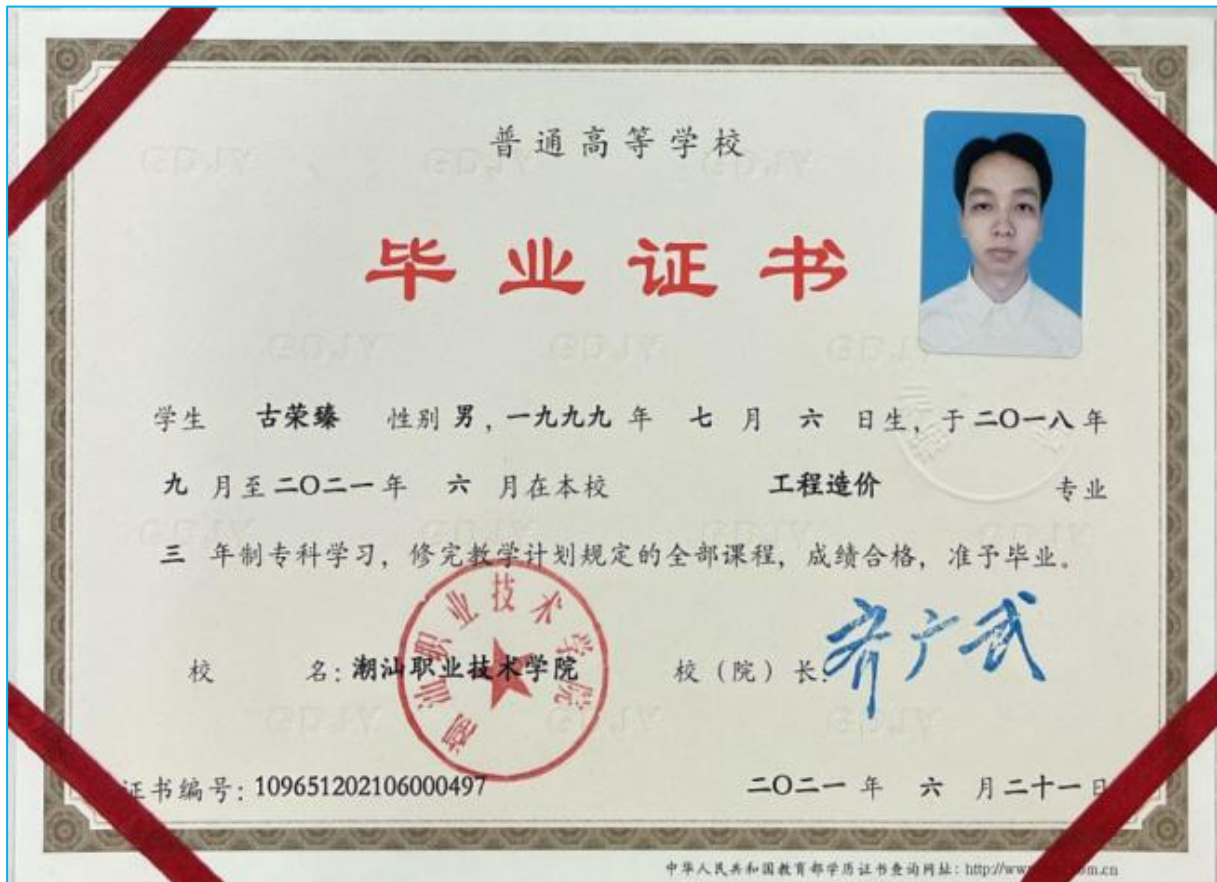 普通高等学校
毕业证书
学生 古荣臻 性别 男，一九九九 年 七 月 六 日生，于二〇一八年
九 月至二〇二一年 六 月在本校 工程造价 专业
三 年制专科学习，修完教学计划规定的全部课程，成绩合格，准予毕业。
潮汕职业技术学院
校 名：潮汕职业技术学院 校（院）长：
证书编号：109651202106000497 二〇二一 年 六 月二十一日
中华人民共和国教育部学历证书查询网址：http://www om.cn